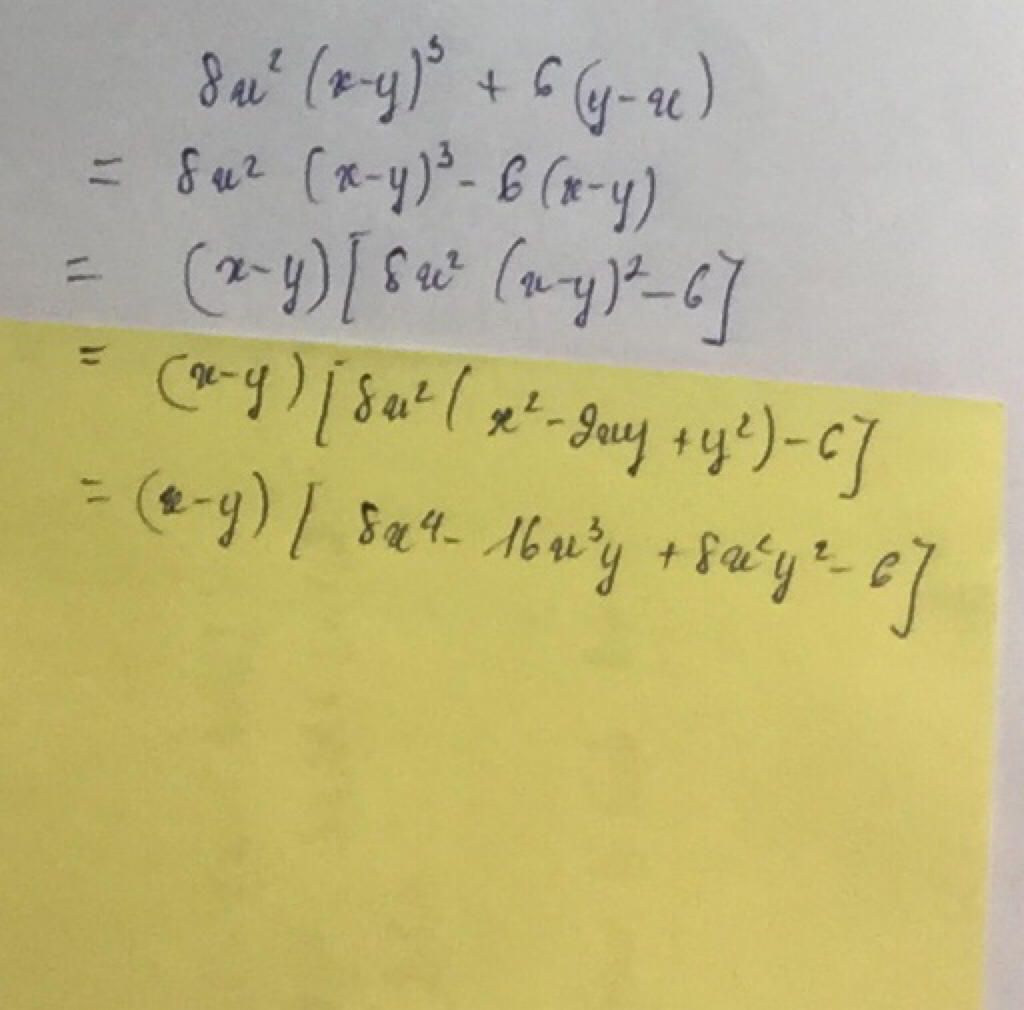 8x² (x-y)³ + 6 (y-x)
= 8x² (x-y)³ - 6 (x-y)
= (x-y) [ 8x² (x-y)² - 6]
= (x-y) [ 8x² ( x² - 2xy + y²) - 6]
= (x-y) [ 8x⁴ - 16x³y + 8x²y² - 6]